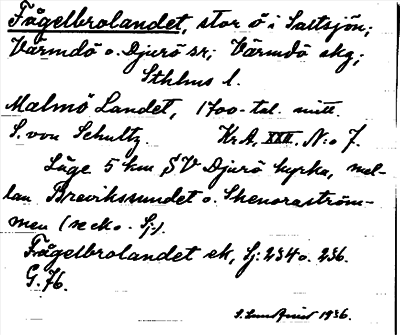 Fågelbrolandet, stor ö i Saltsjön;
Värmdö o. Djurö sr; Värmdö skg;
Sthlms l.
Malmö Landet, 1700-tal. mitt.
S. von Schultz. Kr.A, XXII. N:o 7.
Läge 5 km SV Djurö kyrka, mel-
lan Brevikssundet o. Skenoraström-
men (se ek o. Sj.).
Fågelbrolandet ek, Sj: 234 o. 236.
G. 76.
1936.